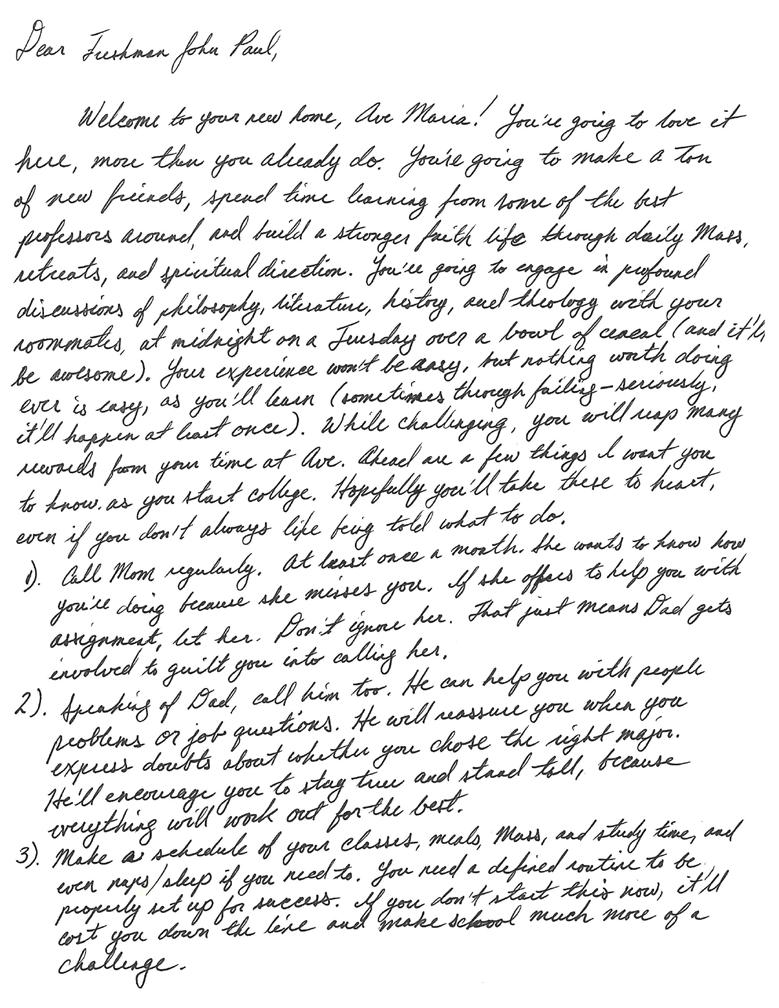 Dear Freshman John Paul,
Welcome to your new home, Ave Maria! You're going to love it
here, more than you already do. You're going to make a ton
of new friends, spend time learning from some of the best
professors around, and build a stronger faith life through daily Mass,
retreats, and spiritual direction. You're going to engage in profound
discussions of philosophy, literature, history, and theology with your
roommates, at midnight on a Tuesday over a bowl of cereal (and it'll
be awesome). Your experience won't be easy, but nothing worth doing
ever is easy, as you'll learn (sometimes through failing - seriously,
it'll happen at least once). While challenging, you will reap many
rewards from your time at Ave. Ahead are a few things I want you
to know as you start college. Hopefully you'll take these to heart,
even if you don't always like being told what to do.
1). Call Mom regularly. At least once a month. She wants to know how
you're doing because she misses you. If she offers to help you with
assignment, let her. Don't ignore her. That just means Dad gets
involved to guilt you into calling her.
2). Speaking of Dad, call him too. He can help you with people
problems or job questions. He will reassure you when you
express doubts about whether you chose the right major.
He'll encourage you to stay true and stand tall, because
everything will work out for the best.
3). Make a schedule of your classes, meals, Mass, and study time, and
even naps/sleep if you need to. You need a defined routine to be
properly set up for success. If you don't start this now, it'll
cost you down the line and make school much more of a
challenge.